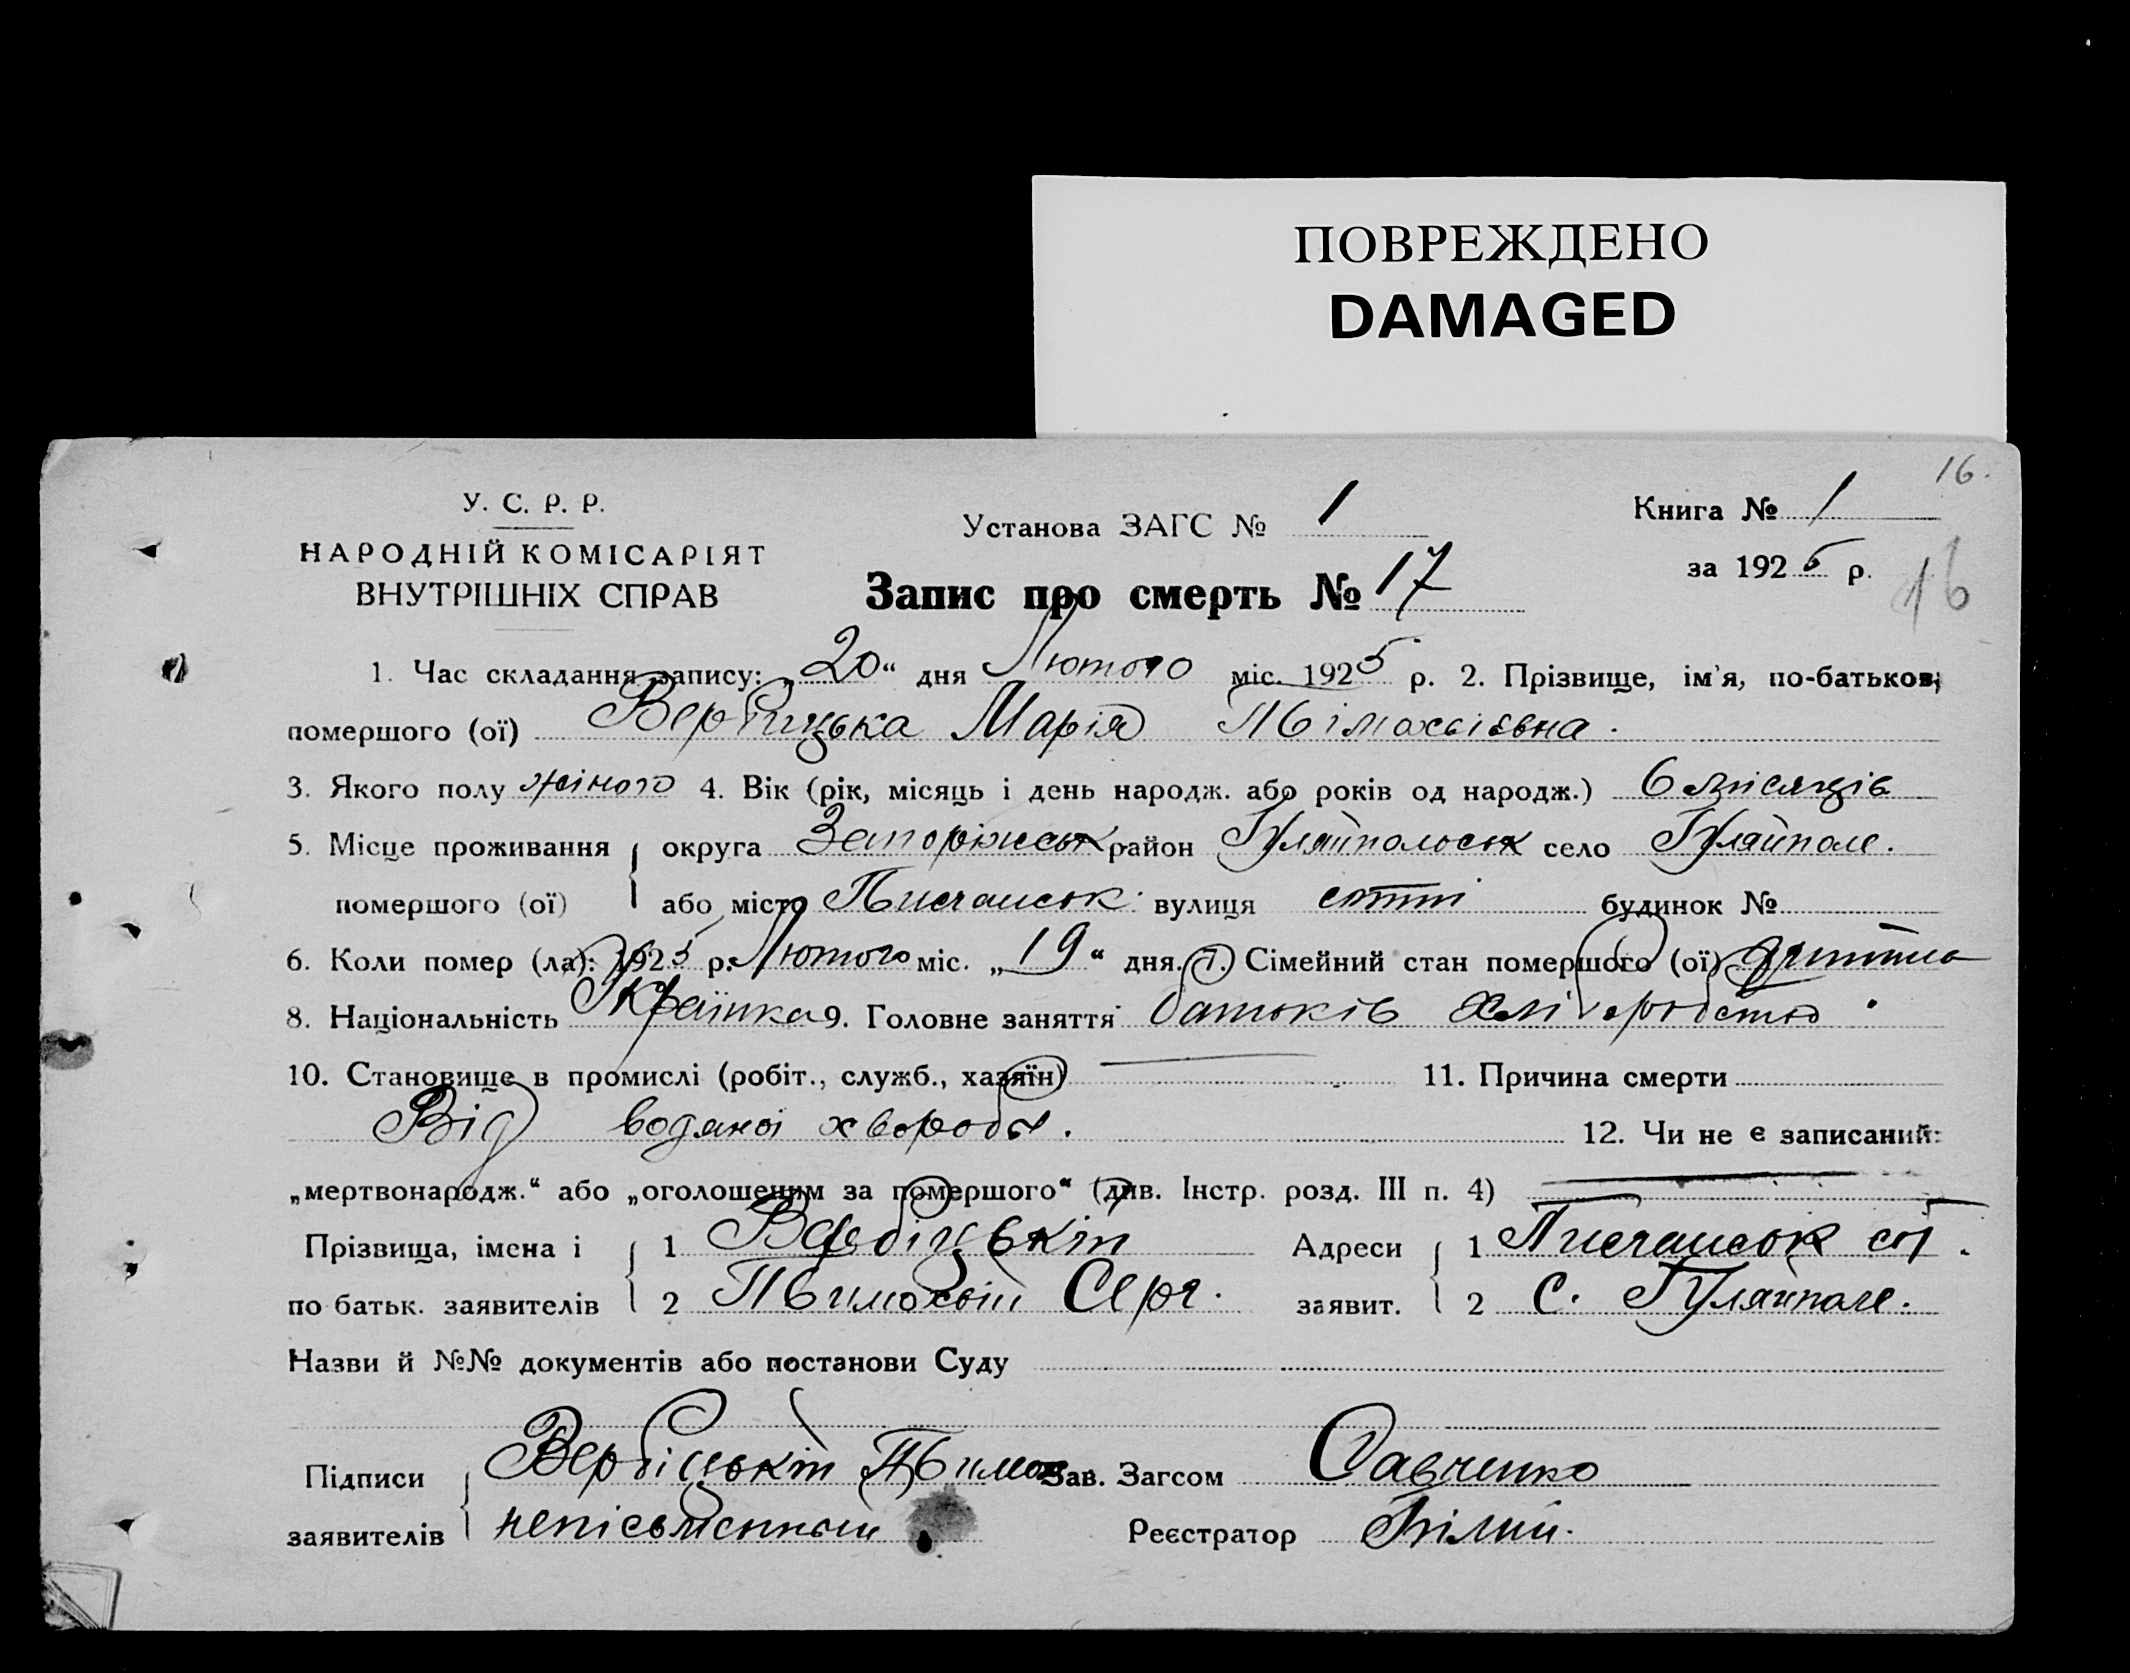 ПОВРЕЖДЕНО
DAMAGED
16.
У. С. Р. Р.
НАРОДНІЙ КОМІСАРІЯТ
ВНУТРІШНІХ СПРАВ
Установа ЗАГС № 1
Книга № 1
за 1925 р.
16
Запис про смерть № 17
1. Час складання запису: „20“ дня Лютого міс. 1925 р. 2. Прізвище, ім'я, по-батькові
помершого (ої) Вербицька Марія
3. Якого полу жіного 4. Вік (рік, місяць і день народж. або років од народж.) 6 місяців
5. Місце проживання округа Запоріжськ район Гуляйпольськ село Гуляйполе.
помершого (ої) або місто вулиця сотні будинок №
6. Коли помер (ла): 1925 р. Лютого міс. „19“ дня. 7. Сімейний стан помершого (ої) дитина
8. Національність Українка 9. Головне заняття батьків хліборобство
10. Становище в промислі (робіт., служб., хазяїн) 11. Причина смерти
Від водяної хвороби.
12. Чи не є записаний:
„мертвонародж.“ або „оголошеним за помершого“ (див. Інстр. розд. III п. 4)
Прізвища, імена і 1 Вербіцький Адреси 1
по батьк. заявителів 2 Серг. заявит. 2 С. Гуляйполе.
Назви й №№ документів або постанови Суду
Підписи Вербіцький Зав. Загсом Савченко
заявителів непісьменный Реєстратор Білий.